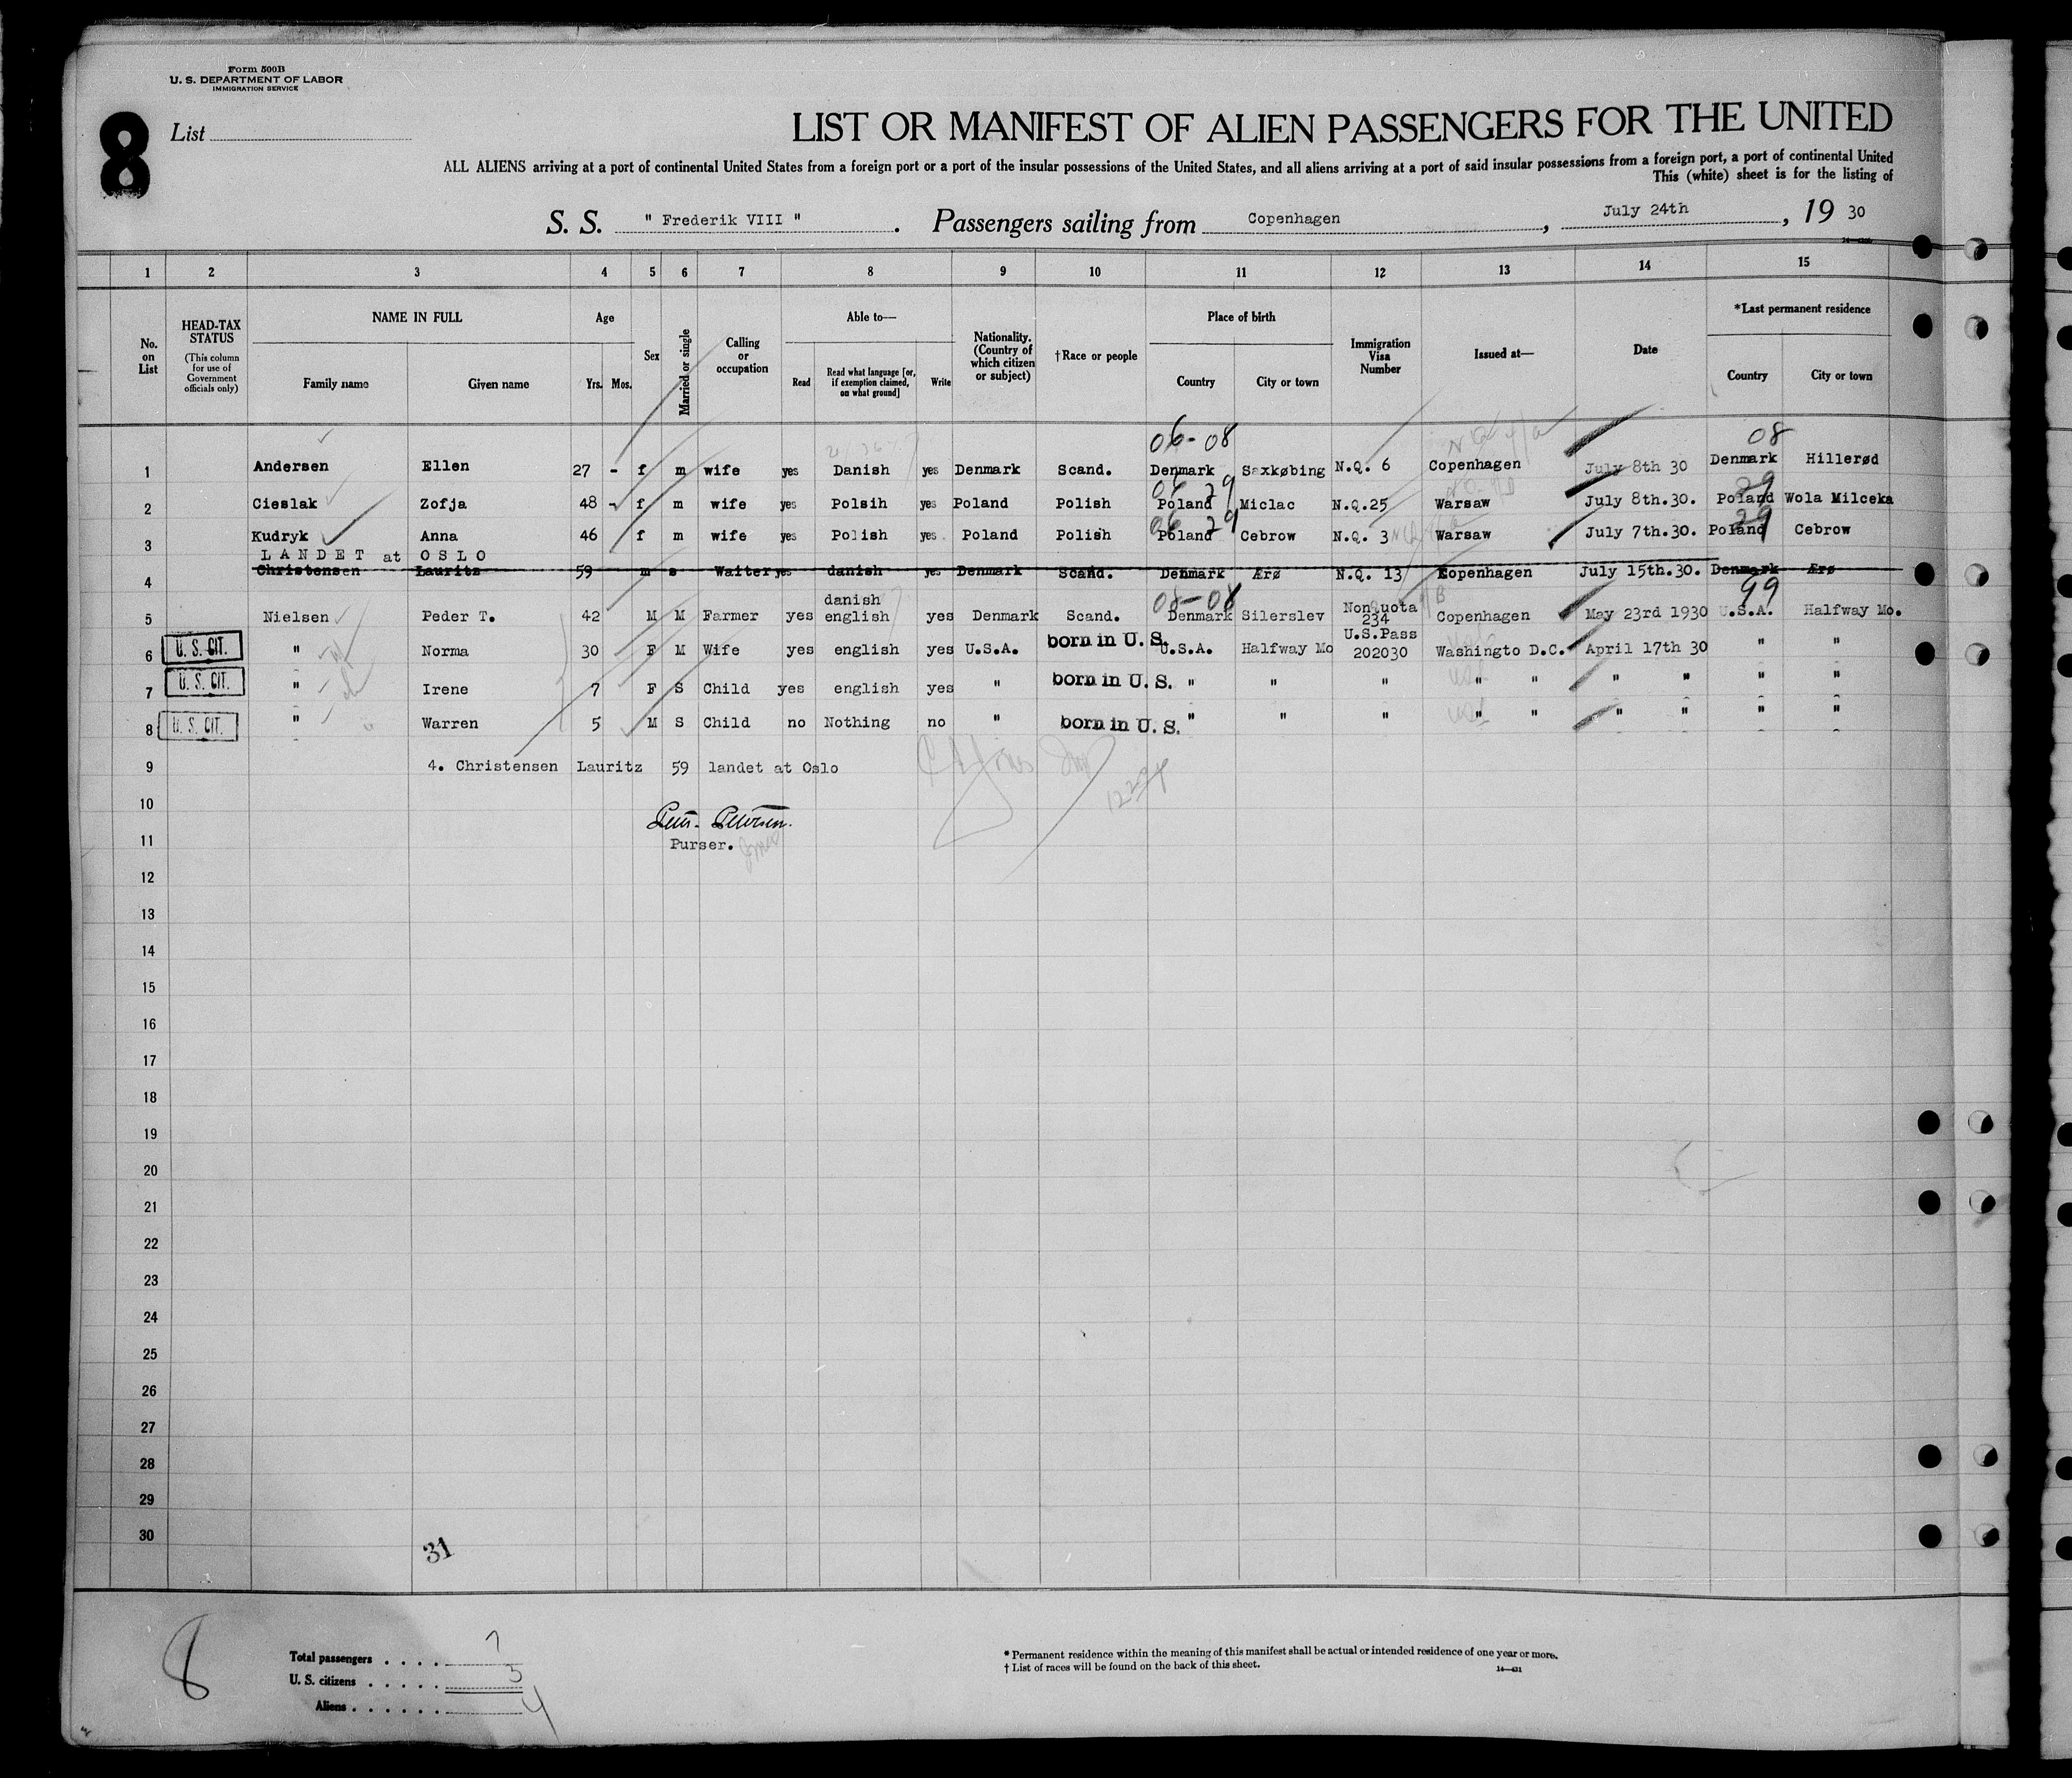 Form 500B
U. S. DEPARTMENT OF LABOR
IMMIGRATION SERVICE
8
List
LIST OR MANIFEST OF ALIEN PASSENGERS FOR THE UNITED
ALL ALIENS arriving at a port of continental United States from a foreign port or a port of the insular possessions of the United States, and all aliens arriving at a port of said insular possessions from a foreign port, a port of continental United
This (white) sheet is for the listing of
S. S. " Frederik VIII " . Passengers sailing from Copenhagen , July 24th , 19 30
1 2 3 4 5 6 7 8 9 10 11 12 13 14 15
No. on List
HEAD-TAX STATUS
(This column for use of Government officials only)
NAME IN FULL
Family name Given name
Age
Yrs. Mos.
Sex
Married or single
Calling or occupation
Able to—
Read
Read what language [or, if exemption claimed, on what ground]
Write
Nationality. (Country of which citizen or subject)
†Race or people
Place of birth
Country City or town
Immigration Visa Number
Issued at—
Date
*Last permanent residence
Country City or town
06-08 08
1 Andersen Ellen 27 - f m wife yes Danish yes Denmark Scand. Denmark Saxkøbing N.Q. 6 Copenhagen July 8th 30 Denmark Hillerød
06 29 29
2 Cieslak Zofja 48 - f m wife yes Polsih yes Poland Polish Poland Miclac N.Q.25 Warsaw July 8th.30. Poland Wola Milceka
06 29 29
3 Kudryk Anna 46 f m wife yes Polish yes. Poland Polish Poland Cebrow N.Q. 3 Warsaw July 7th.30. Poland Cebrow
LANDET at OSLO
4 Christensen Lauritz 59 m s Waiter yes danish yes Denmark Scand. Denmark Ærø N.Q. 13 Copenhagen July 15th.30. Denmark Ærø
08-08 99
5 Nielsen Peder T. 42 M M Farmer yes danish english yes Denmark Scand. Denmark Silerslev Nonquota 234 Copenhagen May 23rd 1930 U.S.A. Halfway Mo.
6 U. S. CIT. " Norma 30 F M Wife yes english yes U.S.A. born in U. S. U.S.A. Halfway Mo U.S.Pass 202030 Washingto D.C. April 17th 30 " "
7 U. S. CIT. " Irene 7 F S Child yes english yes " born in U. S. " " " " " " " " "
8 U. S. CIT. " Warren 5 M S Child no Nothing no " born in U. S. " " " " " " " " "
9 4. Christensen Lauritz 59 landet at Oslo
10
11 Purser.
12
13
14
15
16
17
18
19
20
21
22
23
24
25
26
27
28
29
30
31
8
Total passengers . . . . 7
U. S. citizens . . . . . 3
Aliens . . . . . . 4
* Permanent residence within the meaning of this manifest shall be actual or intended residence of one year or more.
† List of races will be found on the back of this sheet.
14—431